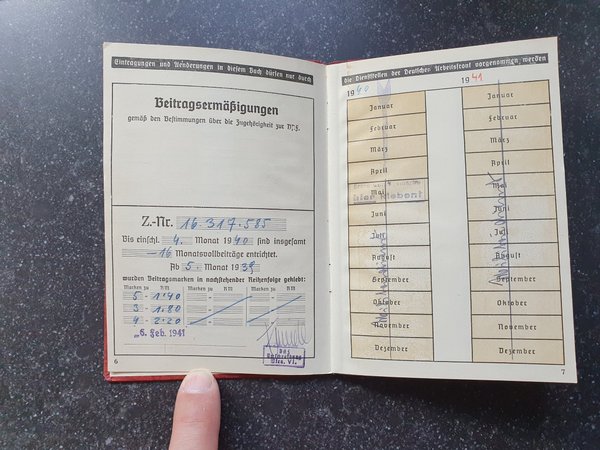 Eintragungen und Aenderungen in diesem Buch dürfen nur durch
Beitragsermäßigungen
gemäß den Bestimmungen über die Zugehörigkeit zur
Z.-Nr. 16.317.585
Bis einschl. 4. Monat 1940 sind insgesamt
-16 Monatsvollbeiträge entrichtet.
Ab 5. Monat 1939
wurden Beitragsmarken in nachstehender Reihenfolge geklebt:
Marken zu RM Marken zu RM Marken zu RM
5 - 1.40
3 - 1.80
4 - 2.20
6. Feb. 1941
6
die Dienststellen der Deutschen Arbeitsfront vorgenommen werden
1940
Januar
Februar
März
April
Mai
Juni
Juli
August
September
Oktober
November
Dezember
1941
Januar
Februar
März
April
Mai
Juni
Juli
August
September
Oktober
November
Dezember
7